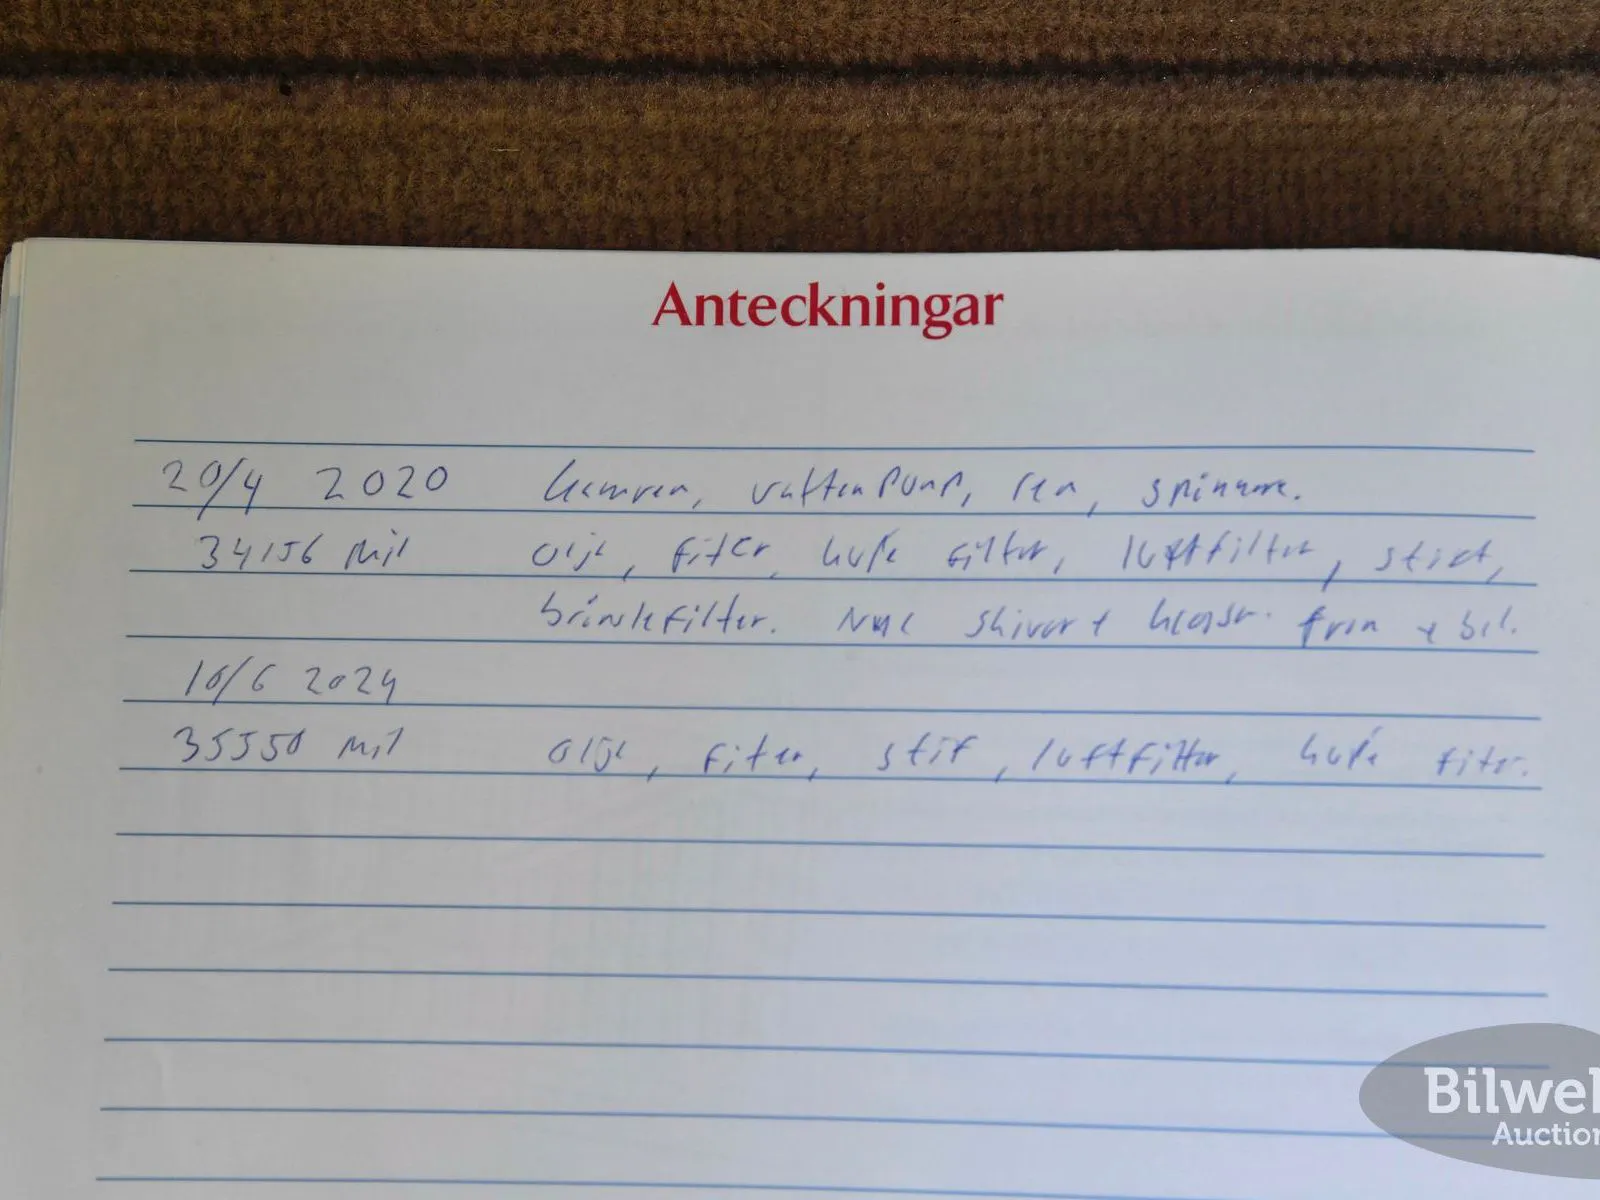 Anteckningar
20/4 2020 kamrem, vattenpump, rem, spännare.
34156 mil olja, filter, kupe filter, luftfilter, stift,
bränslefilter. Nya skivor + klossar. fram + bak.
16/6 2024
35550 mil olja, filter, stift, luftfilter, kupe filter.
Bilwe
Auction